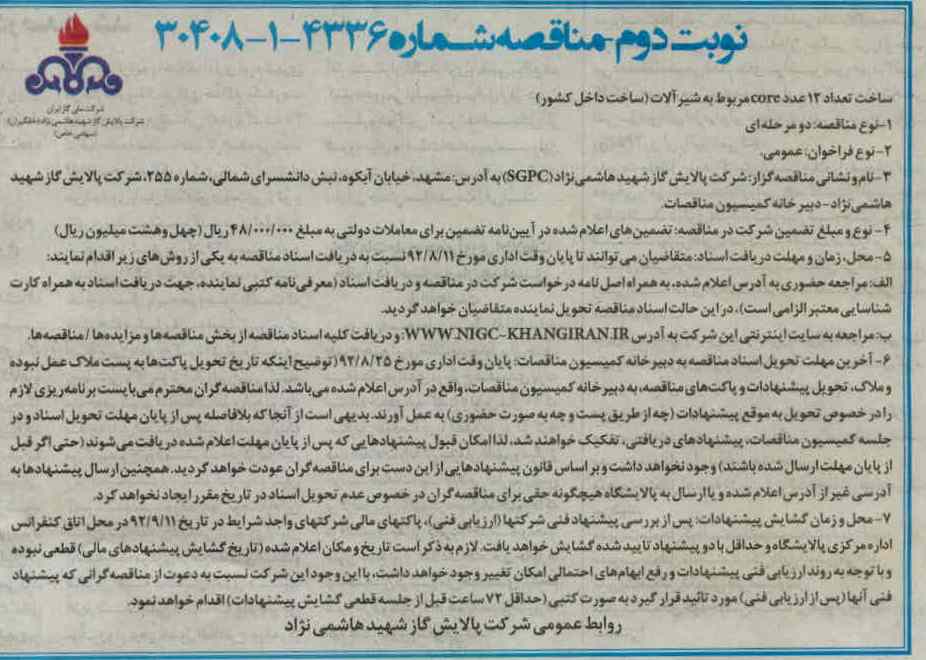 نوبت دوم-مناقصه شماره ۴۳۳۶-۱-۳۰۴۰۸
شرکت ملی گاز ایران
شرکت پالایش گاز شهید هاشمی نژاد (خانگیران)
(سهامی خاص)
ساخت تعداد ۱۲ عدد core مربوط به شیرآلات (ساخت داخل کشور)
۱-نوع مناقصه: دو مرحله ای
۲-نوع فراخوان: عمومی.
۳-نام و نشانی مناقصه گزار: شرکت پالایش گاز شهید هاشمی نژاد (SGPC) به آدرس: مشهد، خیابان آبکوه، نبش دانشسرای شمالی، شماره ۲۵۵، شرکت پالایش گاز شهید
هاشمی نژاد-دبیرخانه کمیسیون مناقصات.
۴- نوع و مبلغ تضمین شرکت در مناقصه: تضمین های اعلام شده در آیین نامه تضمین برای معاملات دولتی به مبلغ ۴۸/۰۰۰/۰۰۰ ریال (چهل وهشت میلیون ریال)
۵-محل، زمان و مهلت دریافت اسناد: متقاضیان می توانند تا پایان وقت اداری مورخ ۹۲/۸/۱۱ نسبت به دریافت اسناد مناقصه به یکی از روش های زیر اقدام نمایند:
الف: مراجعه حضوری به آدرس اعلام شده، به همراه اصل نامه درخواست شرکت در مناقصه و دریافت اسناد (معرفی نامه کتبی نماینده، جهت دریافت اسناد به همراه کارت
شناسایی معتبر الزامی است)، در این حالت اسناد مناقصه تحویل نماینده متقاضیان خواهد گردید.
ب: مراجعه به سایت اینترنتی این شرکت به آدرس WWW.NIGC-KHANGIRAN.IR: و دریافت کلیه اسناد مناقصه از بخش مناقصه ها و مزایده ها / مناقصه ها.
۶- آخرین مهلت تحویل اسناد مناقصه به دبیرخانه کمیسیون مناقصات: پایان وقت اداری مورخ ۹۲/۸/۲۵ (توضیح اینکه تاریخ تحویل پاکت ها به پست ملاک عمل نبوده
و ملاک، تحویل پیشنهادات و پاکت های مناقصه، به دبیرخانه کمیسیون مناقصات، واقع در آدرس اعلام شده می باشد. لذا مناقصه گران محترم می بایست برنامه ریزی لازم
را در خصوص تحویل به موقع پیشنهادات (چه از طریق پست و چه به صورت حضوری) به عمل آورند. بدیهی است از آنجا که بلافاصله پس از پایان مهلت تحویل اسناد و در
جلسه کمیسیون مناقصات، پیشنهادهای دریافتی، تفکیک خواهند شد، لذا امکان قبول پیشنهادهایی که پس از پایان مهلت اعلام شده دریافت می شوند (حتی اگر قبل
از پایان مهلت ارسال شده باشند) وجود نخواهد داشت و بر اساس قانون پیشنهادهایی از این دست برای مناقصه گران عودت خواهد گردید. همچنین ارسال پیشنهادها به
آدرسی غیر از آدرس اعلام شده و یا ارسال به پالایشگاه هیچگونه حقی برای مناقصه گران در خصوص عدم تحویل اسناد در تاریخ مقرر ایجاد نخواهد کرد.
۷-محل و زمان گشایش پیشنهادات: پس از بررسی پیشنهاد فنی شرکتها (ارزیابی فنی)، پاکتهای مالی شرکتهای واجد شرایط در تاریخ ۹۲/۹/۱۱ در محل اتاق کنفرانس
اداره مرکزی پالایشگاه و حداقل با دو پیشنهاد تایید شده گشایش خواهد یافت. لازم به ذکر است تاریخ و مکان اعلام شده (تاریخ گشایش پیشنهادهای مالی) قطعی نبوده
و با توجه به روند ارزیابی فنی پیشنهادات و رفع ابهام های احتمالی امکان تغییر وجود خواهد داشت، با این وجود این شرکت نسبت به دعوت از مناقصه گرانی که پیشنهاد
فنی آنها (پس از ارزیابی فنی) مورد تائید قرار گیرد به صورت کتبی (حداقل ۷۲ ساعت قبل از جلسه قطعی گشایش پیشنهادات) اقدام خواهد نمود.
روابط عمومی شرکت پالایش گاز شهید هاشمی نژاد